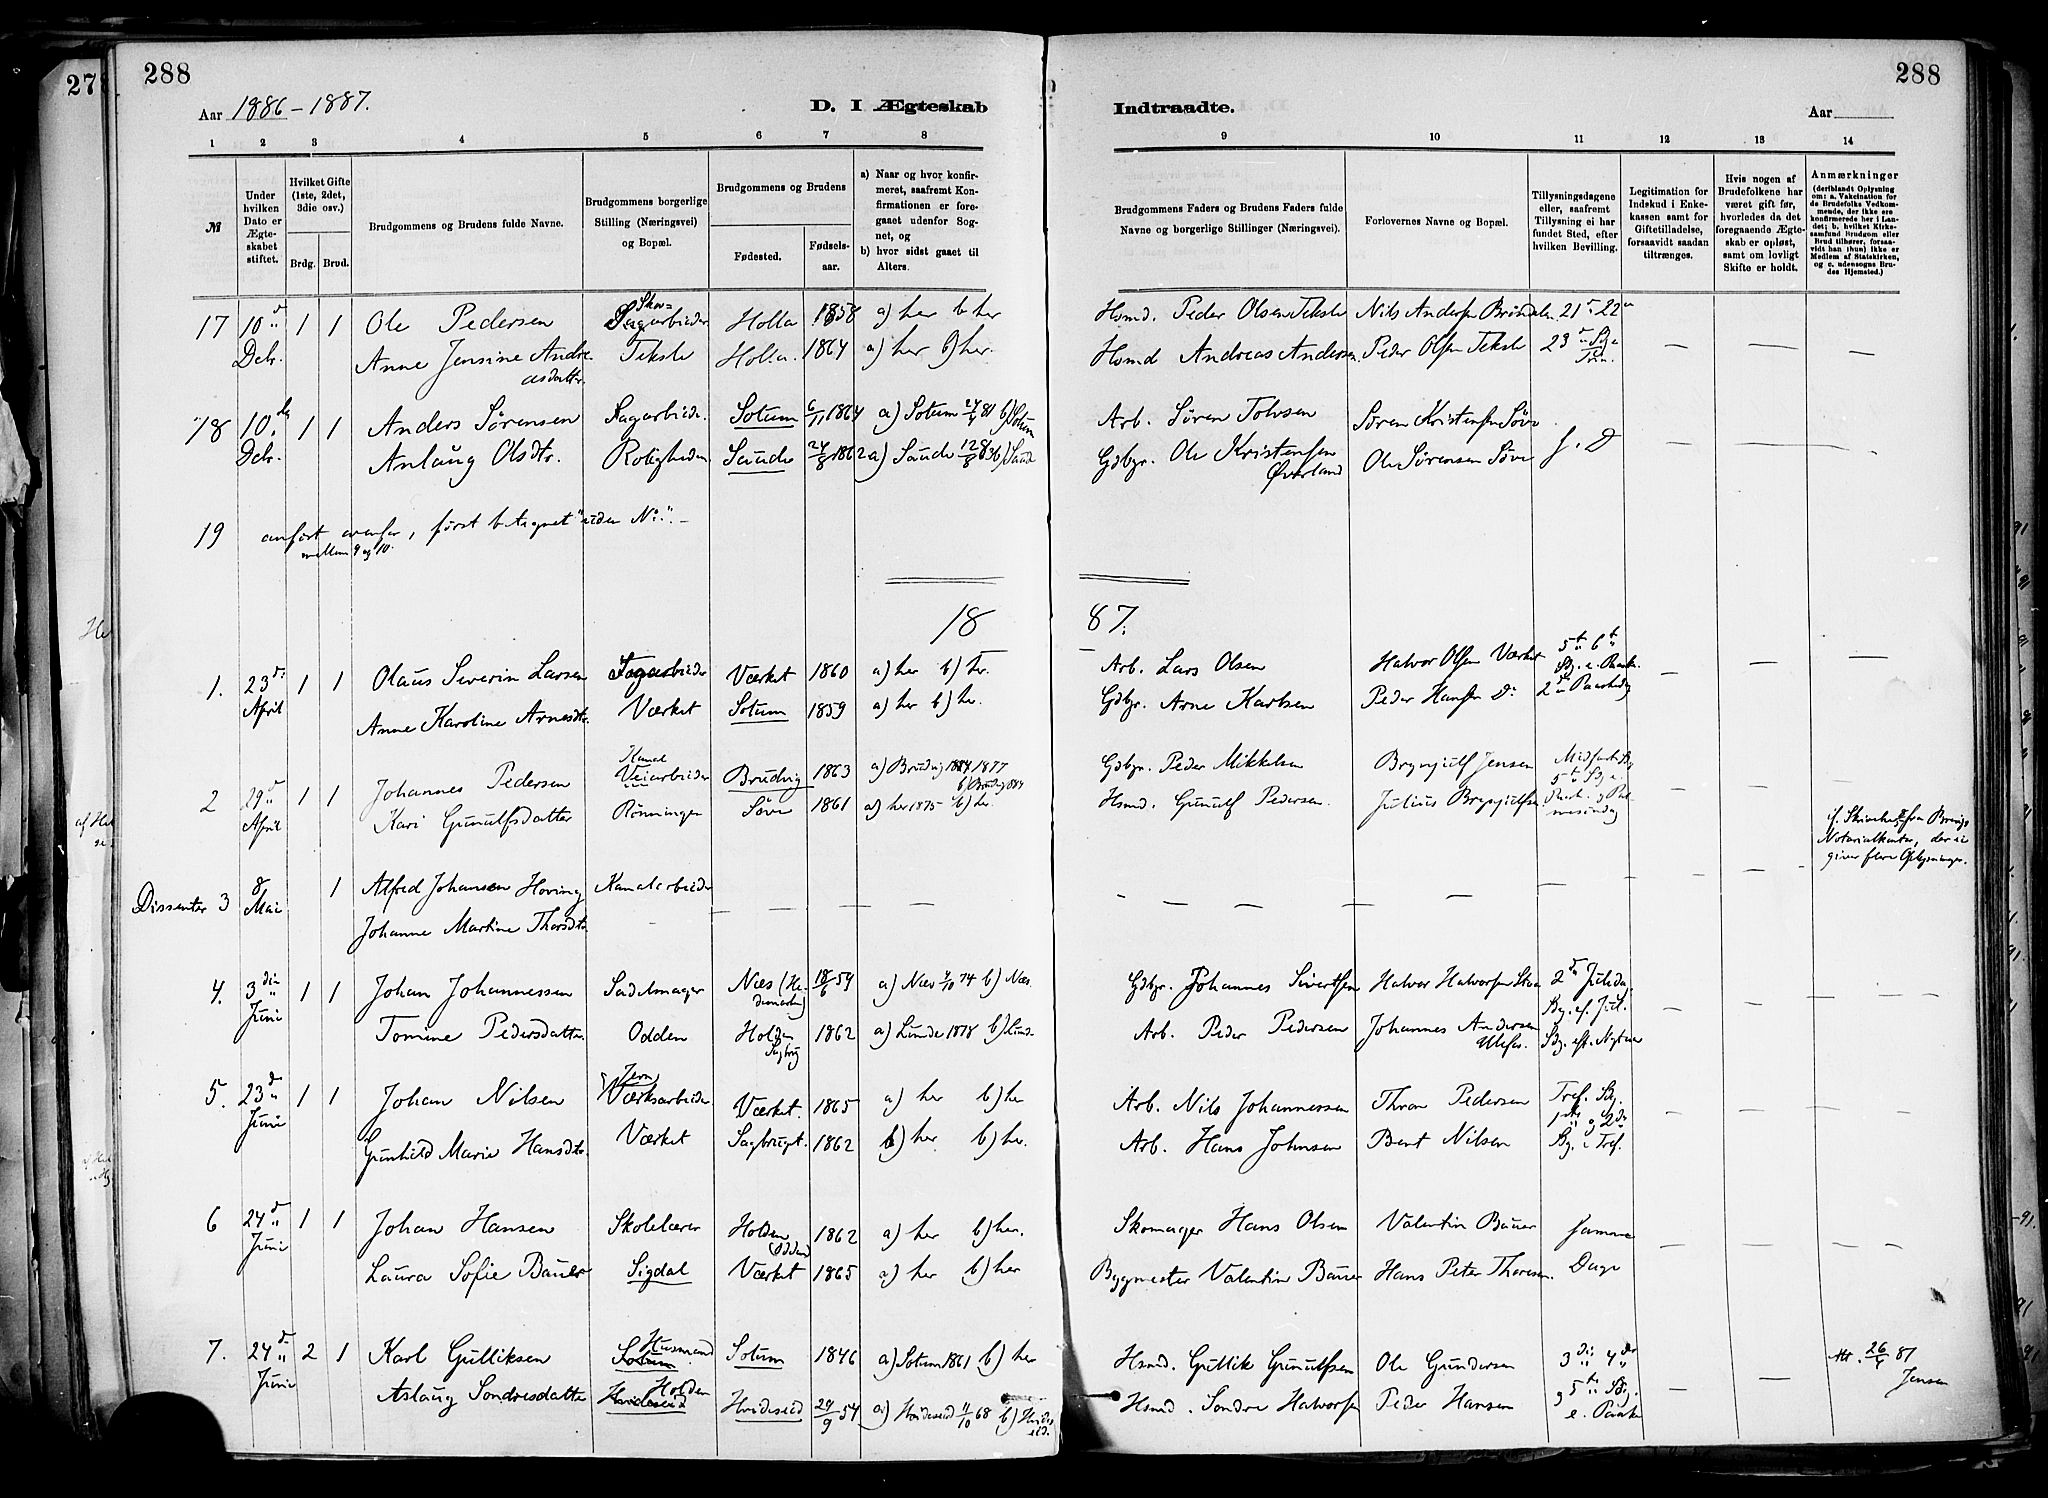 288
288
Aar 1886-1887.
D. I Ægteskab
Indtraadte.
Aar
1 2 3 4 5 6 7 8 9 10 11 12 13 14
№
Under hvilken Dato er Ægteskabet stiftet.
Hvilket Gifte (1ste, 2det, 3die osv.)
Brdg. Brud.
Brudgommens og Brudens fulde Navne.
Brudgommens borgerlige Stilling (Næringsvei) og Bopæl.
Brudgommens og Brudens
Fødested.
Fødselsaar.
a) Naar og hvor konfirmeret, saafremt Konfirmationen er foregaaet udenfor Sognet, og
b) hvor sidst gaaet til Alters.
Brudgommens Faders og Brudens Faders fulde Navne og borgerlige Stillinger (Næringsvei).
Forlovernes Navne og Bopæl.
Tillysningsdagene eller, saafremt Tillysning ei har fundet Sted, efter hvilken Bevilling.
Legitimation for Indskud i Enkekassen samt for Giftetilladelse, forsaavidt saadan tiltrænges.
Hvis nogen af Brudefolkene har været gift før, hvorledes da det foregaaende Ægteskab er opløst, samt om lovligt Skifte er holdt.
Anmærkninger
(deriblandt Oplysning om: a. Vakcination for de Brudefolks Vedkommende, der ikke ere konfirmerede her i Landet; b. hvilket Kirkesamfund Brudgom eller Brud tilhører, forsaavidt han (hun) ikke er Medlem af Statskirken, og c. udensogns Brudes Hjemsted.)
17 10d 1 1 Ole Pedersen Sagarbieder Holla 1858 a) her b) her Hsmd. Peder Olsen Teksle Nils Andersen 21 22
Decbr. Anne Jensine Andreasdatter. Teksle Holla. 1864 a) her b) her. Hsmd Andreas Andersen. Peder Olsen Teksle 23
18 10de 1 1 Anders Sørensen Sagarbieder. Sotum 6/11 1864 a) Sotum 24/4 81 b) Sotum Arb. Søren Tolvsen Søren Kristensen Søve
Decbr. Anlaug Olsdtr. Roligheden Saude 24/8 1862 a) Saude b) Saude Gdbgr. Ole Kristensen Øverland Ole Sørensen Søve
19 anført ovenfor, først betegnet "uden No".
mellem 9 og 10.
1887.
1. 23de 1 1 Olaus Severin Larsen Sagarbieder Værket 1860 a) her b) her. Arb. Lars Olsen Halvor Olsen Værket 5te 6te
April Anne Karoline Arnesdtr. Værket Sotum 1859 a) her b) her. Gdbgr. Arne Karlsen Peder Hansen Do 2
2 29de 1 1 Johannes Pedersen Kanal Veiarbieder Brudvig 1863 a) Brudvig 1877 b) Brudvig 1884 Gdbgr. Peder Mikkelsen Brynjulf Jensen
April Kari Gunulfsdatter Rønningen Søve 1861 a) her 1875 b) her. Hsmd. Gunulf Pedersen. Julius Brynjulfsen
Notarialkontor, der ei giver flere Oplysninger.
Dissenter 3 8 Mai 1 Alfred Johansen Hoving Kanalarbieder
Johanne Martine Thorsdtr.
4. 3die 1 1 Johan Johannessen Sadelmager Næs (Hedemarken) 18/6 54 a) Næs 4/10 74 b) Næs. Gdbgr. Johannes Sivertsen Halvor Halvorsen 2d Juledag
Juni Tomine Pedersdatter. Odden Holden Sagbrug 1862 a) Lunde 1878 b) Lunde Arb. Peder Pedersen Johannes Andersen Ulefos.
5. 23de 1 1 Johan Nilsen Jern Værksarbieder Værket. 1865 a) her b) her Arb. Nils Johannessen Thron Pedersen Tref. Sg.
Juni Gunhild Marie Hansdtr. Værket Sagbruget. 1862 b) her b) her. Arb. Hans Johnsen Bent Nilsen 1ste og 2den Sg. i Tref.
6 24de 1 1 Johan Hansen Skolelærer Holden (Odden) 1862 a) her b) her. Skomager Hans Olsen Valentin Bauer samme
Juni Laura Sofie Bauer Sigdal Værket 1865 a) her b) her Bygmester Valentin Bauer Hans Peter Thoresen. Dage
7. 24de 2 1 Karl Gulliksen Husmand Sotum Sotum 1846 a) Sotum 1861 b) her Hsmd. Gullik Gunulfsen Ole Gundersen 3die 4de
Juni Aslaug Sondresdatter Holden Hvideseid Hvideseid 29/9 54 a) Hvideseid 11/10 68 b) Hvideseid. Hsmd. Sondre Halvorsen Peder Hansen og 5te Sg. e. Paaske
Att. 26/4 87 Jensen